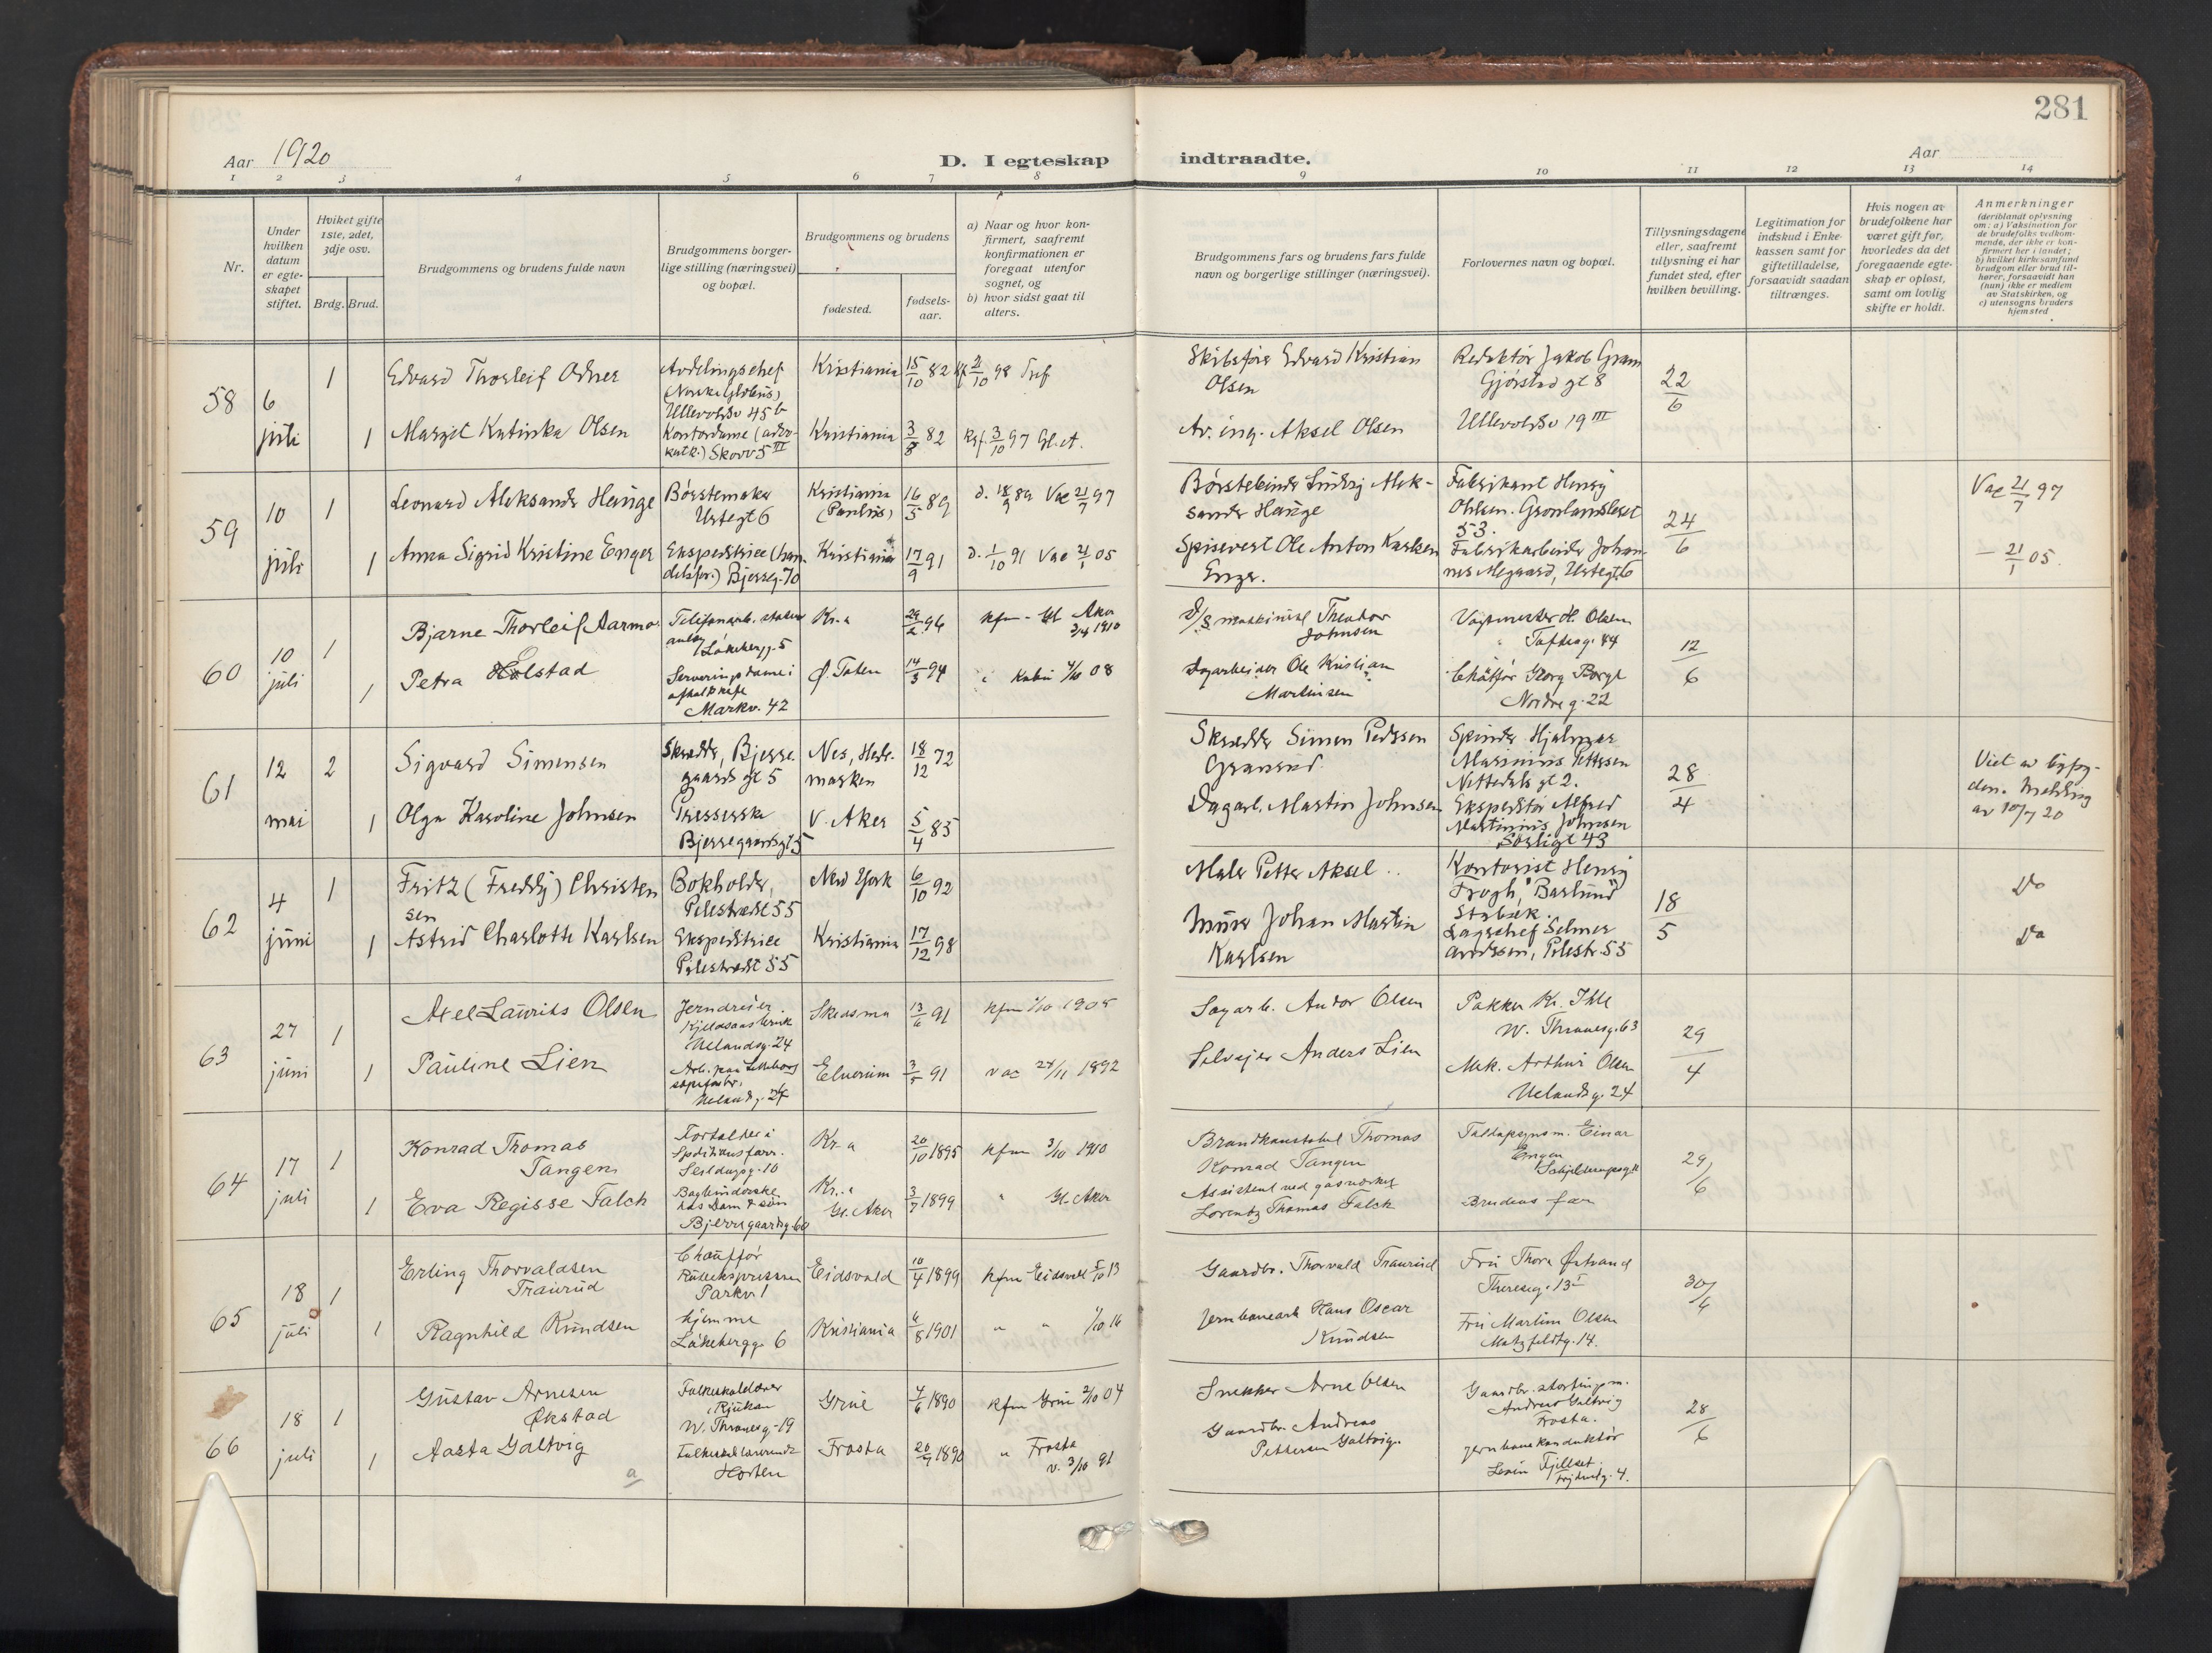 281
Aar 1920
D. I egteskap indtraadte.
Aar
1 2 3 4 5 6 7 8 9 10 11 12 13 14
Nr.
Under hvilken datum er egteskapet stiftet.
Hviket gifte 1ste, 2det, 3dje osv.
Brdg. Brud.
Brudgommens og brudens fulde navn
Brudgommens borger-
lige stilling (næringsvei)
og bopæl.
Brudgommens og brudens
fødested.
fødsels-
aar.
a) Naar og hvor kon-
firmert, saafremt
konfirmationen er
foregaat utenfor
sognet, og
b) hvor sidst gaat til
alters.
Brudgommens fars og brudens fars fulde
navn og borgerlige stillinger (næringsvei).
Forlovernes navn og bopæl.
Tillysningsdagene
eller, saafremt
tillysning ei har
fundet sted, efter
hvilken bevilling.
Legitimation for
indskud i Enke-
kassen samt for
giftetilladelse,
forsaavidt saadan
tiltrænges.
Hvis nogen av
brudefolkene har
været gift før,
hvorledes da det
foregaaende egte-
skap er opløst,
samt om lovlig
skifte er holdt.
Anmerkninger
(deriblandt oplysning
om: a) Vaksination for
de brudefolks vedkom-
mende, der ikke er kon-
firmert her i landet;
b) hvilket kirkesamfund
brudgom eller brud til-
hører, forsaavidt han
(hun) ikke er medlem
av Statskirken, og
c) utensogns bruders
hjemsted
58
6
juli
1
Edvard Thorleif Odner
Avdelingschef
(Norske Globus)
Ullevolsv 45 b
Kristiania
15/10 82
2/10 98 Tref
Skibsfører Edvard Kristian
Olsen
Redaktør Jakob Gram
Gjørstad gt 8
22/6
1
Margit Katinka Olsen
Kontordame (advo-
katk.) Skovv 5 III
Kristiania
3/8 82
Kgf. 3/10 97 Gl. A.
Av. ing. Aksel Olsen
Ullevolsv 19 III
59
10
juli
1
Leonard Aleksander Hauge
Børstemaker
Urtegt 6
Kristiania
(Paulus)
16/5 89
d. 18/9 89 Vac 21/7 97
Børstebinder Ludvig Alek-
sander Hauge
Fabrikant Henry
Ohlsen. Grønlandsleret
53.
24/6
Vac 21/7 97
1
Anna Sigrid Kristine Enger
Ekspeditrice (han-
delsfor.) Bjerreg. 70
Kristiania
17/9 91
d. 1/10 91 Vac 21/1 05
Spisevert Ole Anton Karken
Enger.
Fabrikarbeider Johan-
nes Megaard, Urtegt 6
— 21/1 05.
60
10
juli
1
Bjarne Thorleif Aarmo
Telefonarb. statens
anlæg
Løkkebergg. 5
Kr.a
29/2 96
kfm - Gl Aker
3/4 1910
D/S maskinist Theodor
Johnsen
Vagtmester H. Olsen
Toftesg. 44
12/6
1
Petra Holstad
Serveringsdame i
asfalt kafe
Markv. 42
Ø. Toten
14/3 94
i Kabu 4/10 08
Dagarbeider Ole Kristian
Martinsen
Chauffør Georg Borge
Nordreg. 22
61
12
mai
2
Sigvard Simensen
Skrædder, Bjerre-
gaards gt 5
Nes, Hede-
marken
18/12 72
Skrædder Simen Pedersen
Granerud.
Spinder Hjalmar
Marinius Pettersen
Nittedals gt 2.
28/4
Viet av byfog-
den. Melding
av 10/7 20
1
Olga Karoline Johnsen
Presserske
Bjerregaardsgt 5
V. Aker
5/4 85
Dagarb. Martin Johnsen
Ekspeditør Alfred
Martinius Johnsen
Sørligt 43
62
4
juni
1
Fritz (Freddy) Christen
sen
Bokholder,
Pilestrædet 55
New York
6/10 92
Maler Petter Aksel ..
Kontorist Henry
Frogh, Barlund
Stabæk.
18/5
Do
1
Astrid Charlotte Karlsen
Ekspeditrice
Pilestrædt 55
Kristiania
17/12 98
Murer Johan Martin
Karlsen
Lagerchef Selmer
Andersen, Pilestr. 55
Do
63
27
juni
1
Axel Laurits Olsen
Jerndreier
Kjeldsaas bruk
Uelandsg. 24
Skedsmo
13/6 91
kfm 1/10 1905
Dagarb. Andor Olsen
Pakker Kr. Ihle
W. Thranesg. 63
29/4
1
Pauline Lien
Arb. paa Lilleborg
sæpefabr.
Uelandsg. 24
Elverum
3/5 91
vac 24/11 1892
Selveier Anders Lien
Mek. Arthur Olsen
Uelandsg. 24
64
17
juli
1
Konrad Thomas
Tangen
Fortolder i
Spditionsforr.
Seilduksg. 10
Kr.a
20/10 1895
kfm 3/10 1910
Brandkonstabel Thomas
Konrad Tangen
Toldopsynsm. Einar
Engen
29/6
1
Eva Regisse Falch
Bogbinderske
hos Dam & søn
Bjerregaardsg 60
Kr.a
Gl. Aker
3/7 1899
" Gl. Aker
Assistent ved gasverket
Lorentz Thomas Falck
Brudens far
65
18
juli
1
Erling Thorvaldsen
Traurud
Chauffør
Ruteekspressen
Parkv 1
Eidsvold
10/4 1899
kfm Eidsvold 5/10 13
Gaardbr. Thorvald Traurud
Fru Thora Østvand
Theresesg. 13 I
30/6
1
Ragnhild Knudsen
hjemme
Løkkebergg. 6
Kristiania
6/8 1901
" " 1/10 16
Jernbanearb Hans Oscar
Knudsen
Fru Martin Olsen
Motzfeldtg. 14.
66
18
juli
1
Gustav Arnesen
Økstad
Folkeskolelærer
Rjukan
W. Thranesg. 19
Grue
4/6 1890
kfm Grue 2/10 04
Snekker Arne Olsen
Gaardbr. stortingsm.
Andreas Galtvig
Frosta.
28/6
1
Aasta Galtvig
a
Folkeskolelærerinde
Horten
Frosta
20/7 1890
" Frosta
v. 3/10 91
Gaardbr. Andreas
Pettersen Galtvig.
jernbanekonduktør